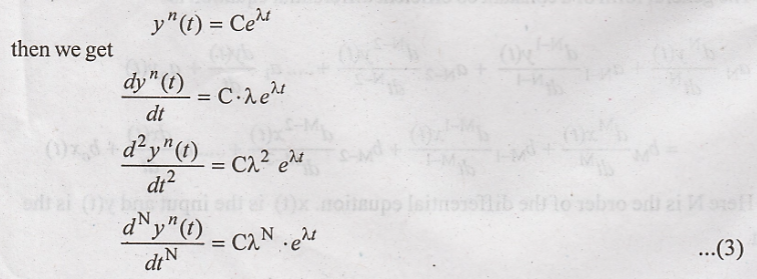 yⁿ(t) = Ce^{λt}
then we get
dyⁿ(t)/dt = C·λe^{λt}
d²yⁿ(t)/dt² = Cλ² e^{λt}
d^N yⁿ(t)/dt^N = Cλ^N ·e^{λt} ...(3)